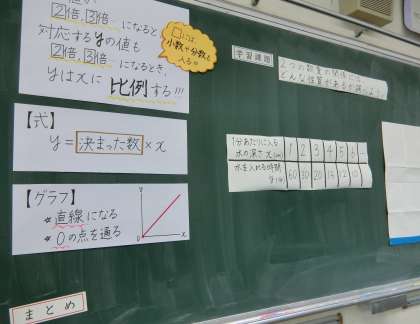 2倍、3倍…になると
対応するyの値も
2倍、3倍…になるとき、
yはxに比例する!!!
□には
小数や分数も
入る。
【式】
y=決まった数×x
【グラフ】
*直線になる
*0の点を通る
y
0
x
まとめ
学習課題
2つの数量の関係に
どんな性質があるか調べよう
1分あたりに入る
水の深さ x cm 1 2 3 4 5 6
水を入れる時間
y 60 30 20 15 12 10